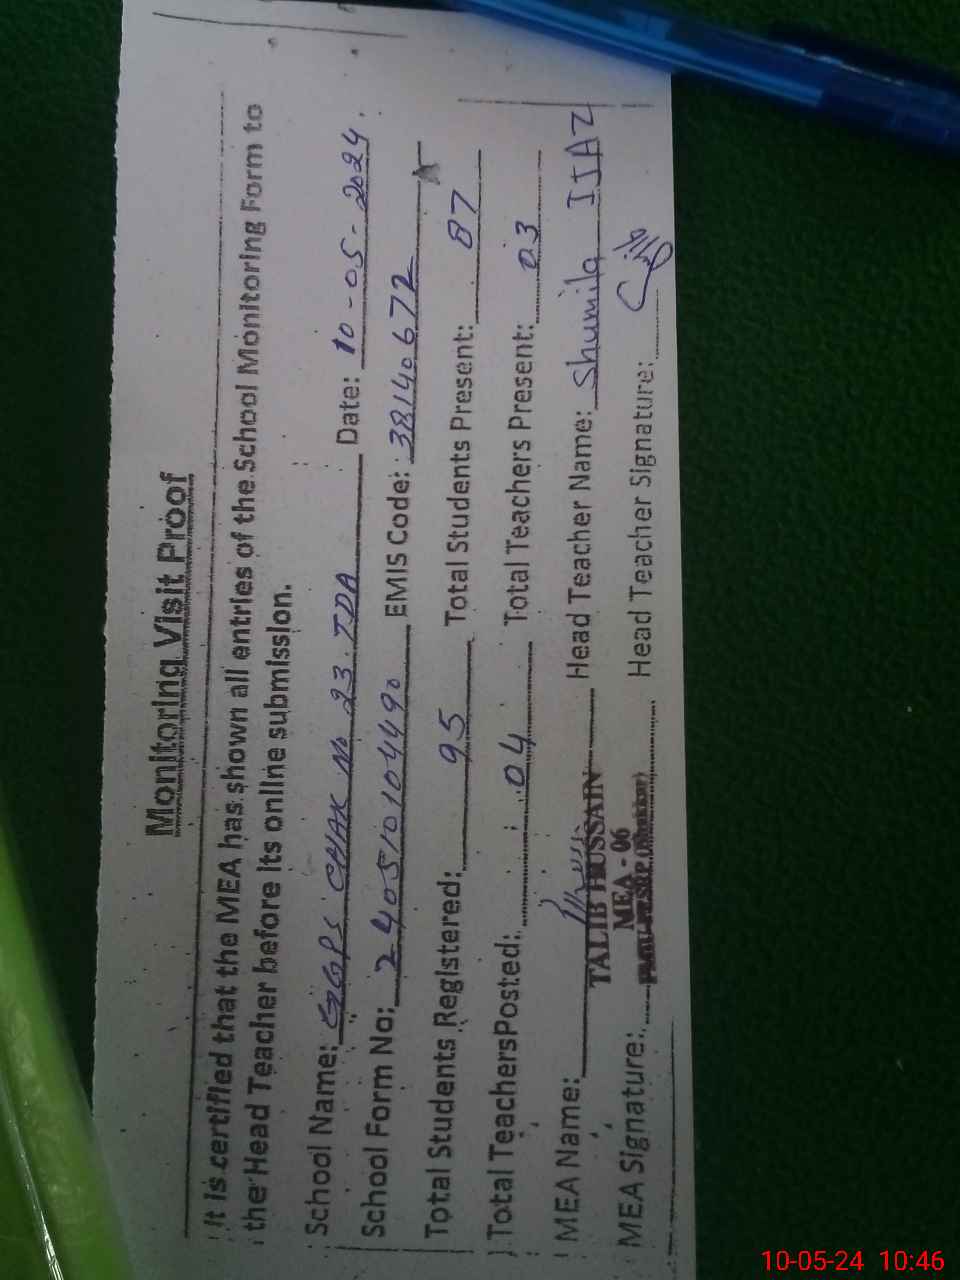 Monitoring Visit Proof
It is certified that the MEA has shown all entries of the School Monitoring Form to
the Head Teacher before its online submission.
School Name: GGPS CHAK No 23. TDA Date: 10-05-2024.
School Form No: 240510104490 EMIS Code: 38140672
Total Students Registered: 95 Total Students Present: 87
Total TeachersPosted: 04 Total Teachers Present: 03
MEA Name: Head Teacher Name: Shumila IJAZ
TALIB HUSSAIN
MEA - 06
MEA Signature: Head Teacher Signature:
10-05-24 10:46